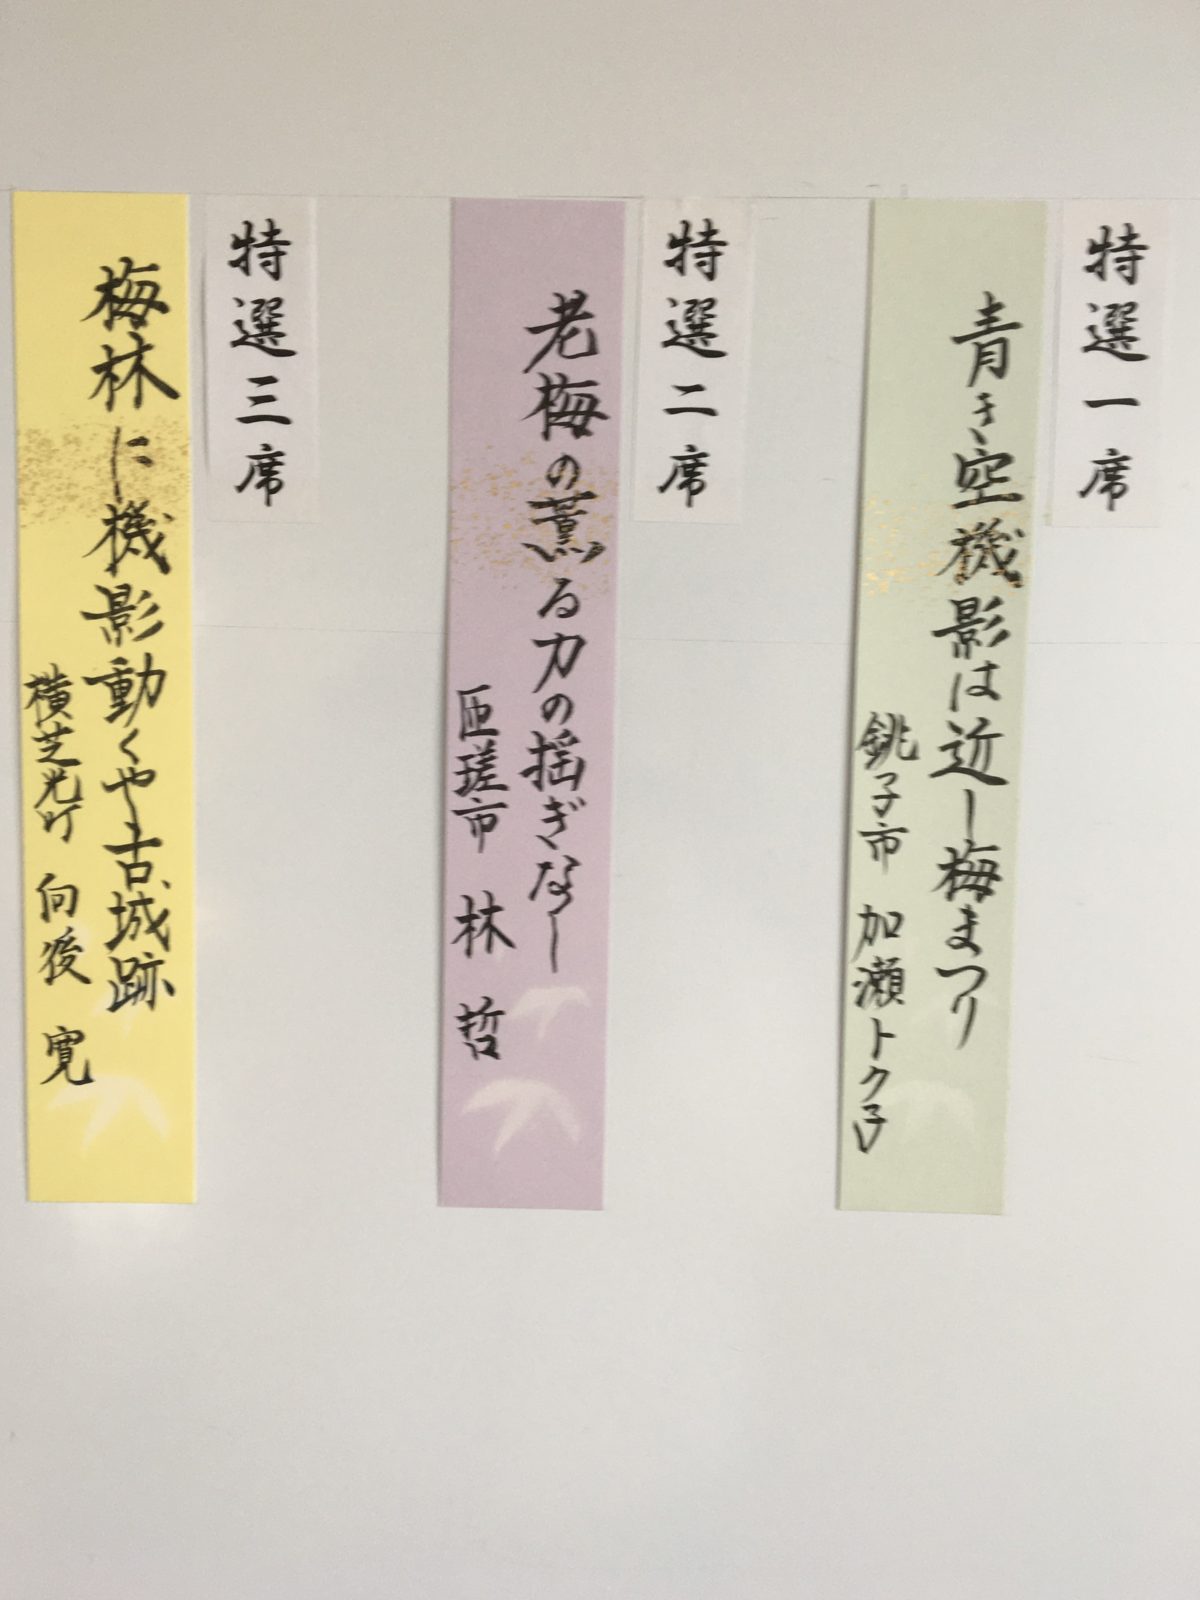 特選一席
青き空機影は近し梅まつり
銚子市 加瀬トク子
特選二席
老梅の薫る力の揺ぎなし
匝瑳市 林 哲
特選三席
梅林に機影動くや古城跡
横芝光町 向後 寛